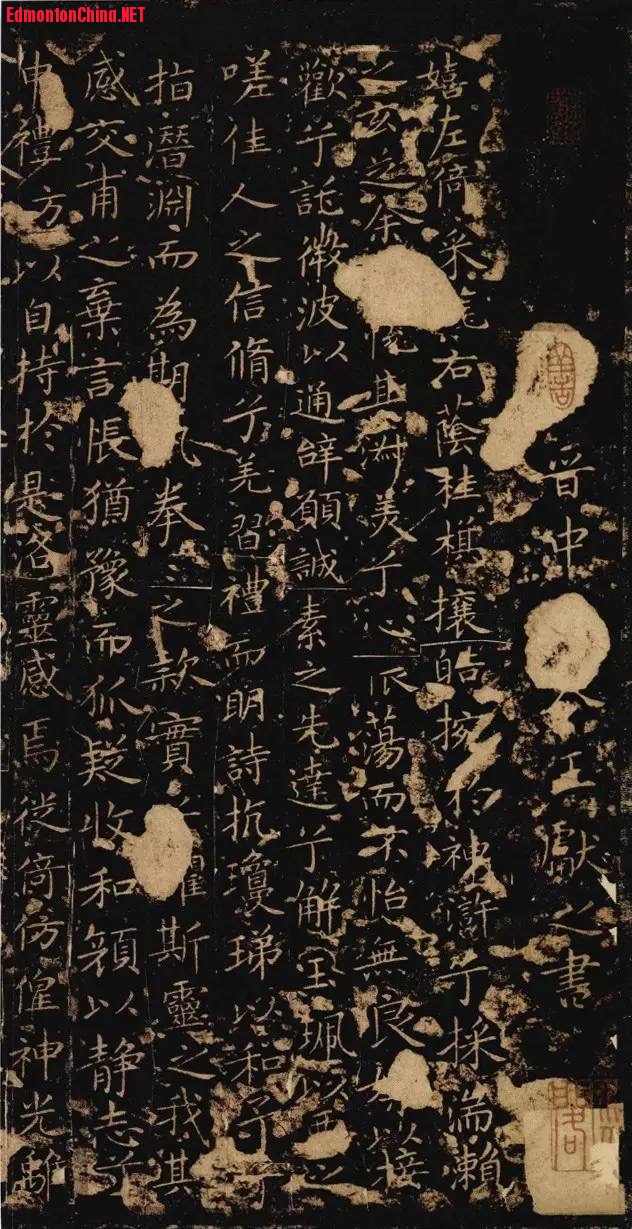 EdmontonChina.NET
晋中令王獻之書
嬉左倚采旄右蔭桂旗攘皓捥於神滸兮採湍瀬
之玄芝余悅其淑美兮心振蕩而不怡無良媒以接
歡兮託微波以通辭願誠素之先達兮解玉珮以要之
嗟佳人之信脩兮羌習禮而明詩抗瓊珶以和予兮
指潛淵而為期執拳〻之款實兮懼斯靈之我欺
感交甫之棄言悵猶豫而狐疑收和顏以静志兮
申禮防以自持於是洛靈感焉徙倚仿偟神光離